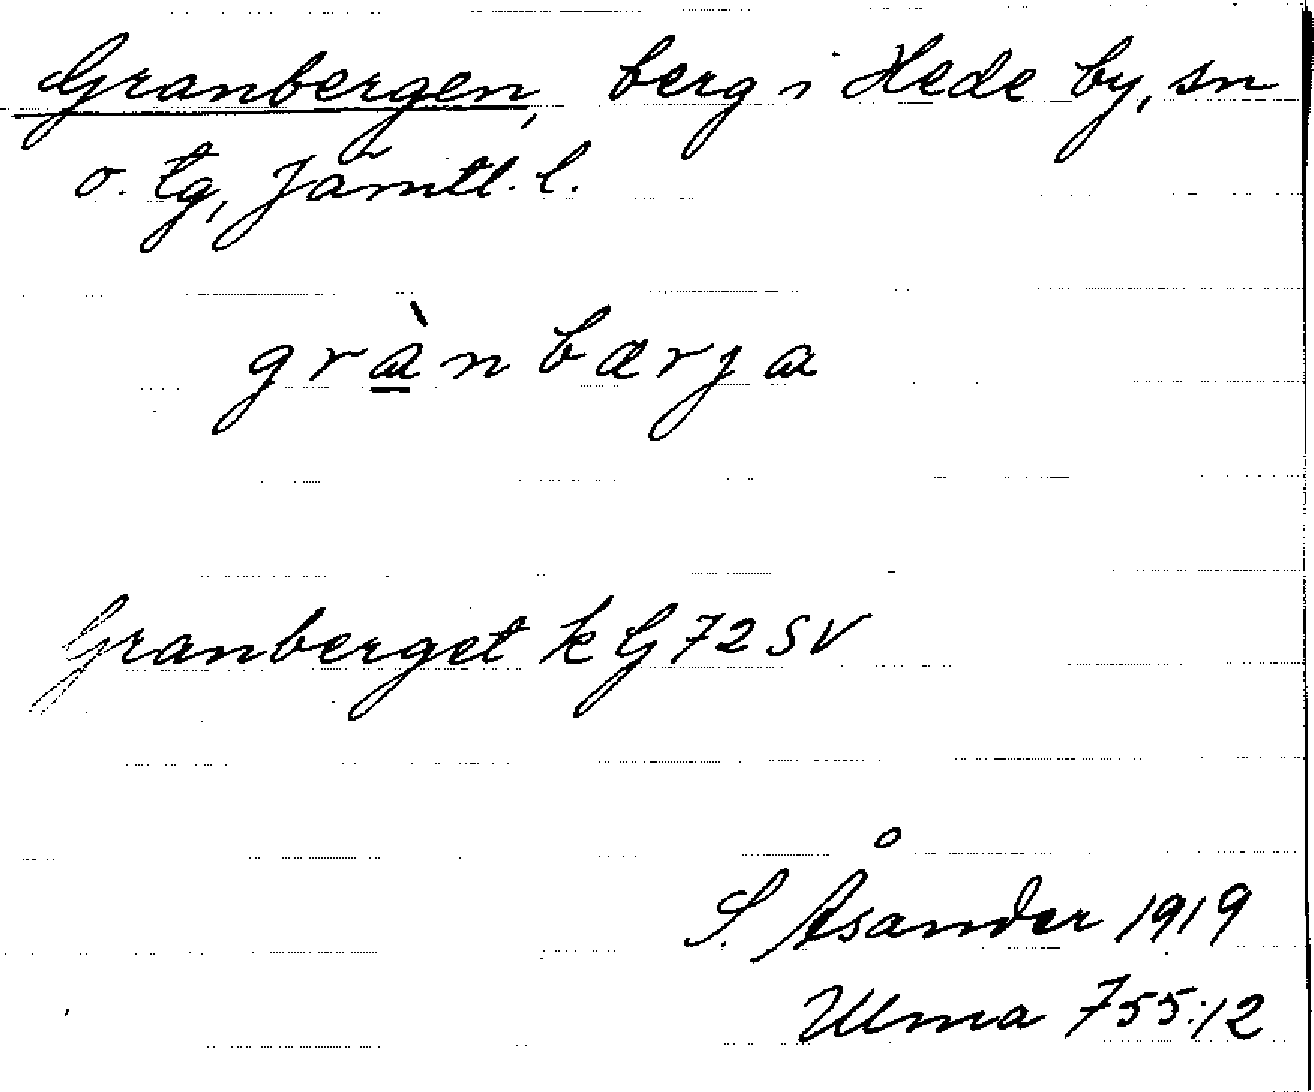 Granbergen, berg i Hede by, sn
o. tg, Jämtl. l.
gràn bærja
Granberget k G 72 SV
S. Åsander 1919
Ulma 755:12